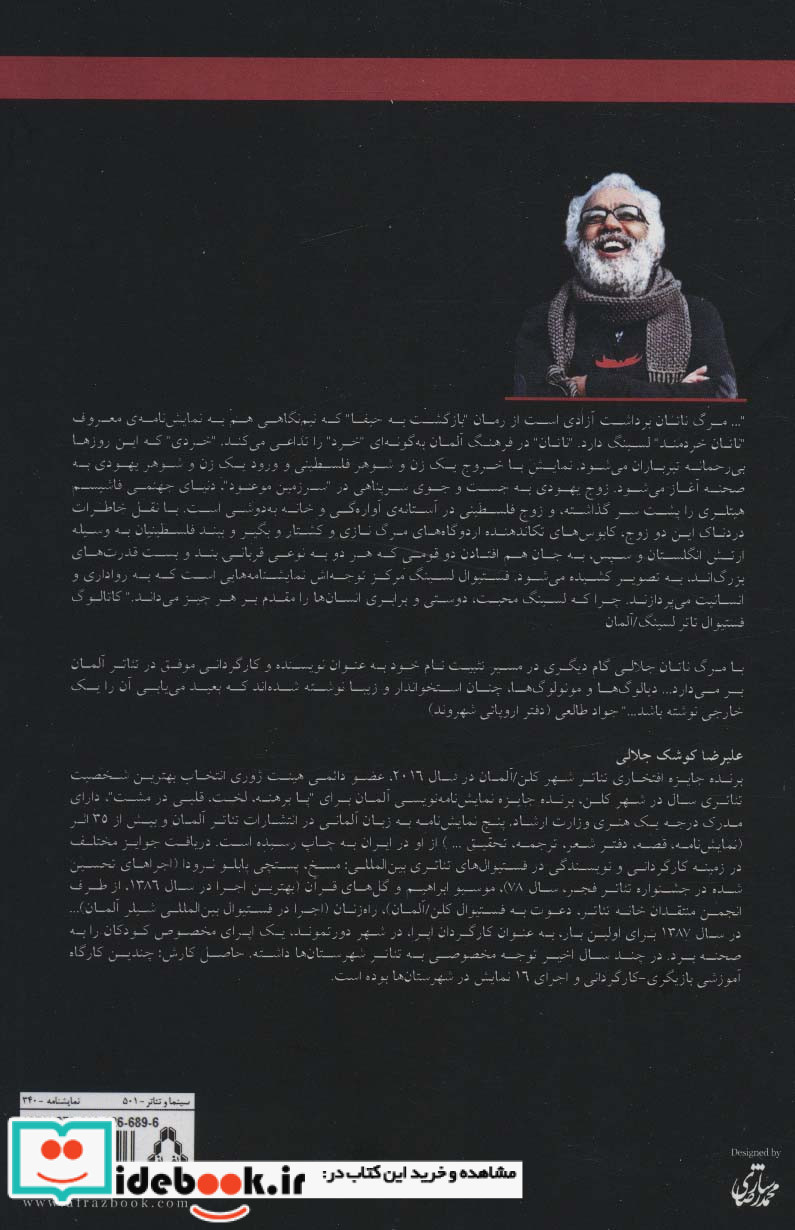 "... مرگ ناتان برداشت آزادی است از رمان "بازگشت به حیفا" که نیم‌نگاهی هم به نمایش‌نامه‌ی معروف
"ناتان خردمند" لسینگ دارد. "ناتان" در فرهنگ آلمان به‌گونه‌ای "خرد" را تداعی می‌کند. "خردی" که این روزها
بی‌رحمانه تیرباران می‌شود. نمایش با خروج یک زن و شوهر فلسطینی و ورود یک زن و شوهر یهودی به
صحنه آغاز می‌شود. زوج یهودی به جست و جوی سرپناهی در "سرزمین موعود"، دنیای جهنمی فاشیسم
هیتلری را پشت سر گذاشته، و زوج فلسطینی در آستانه‌ی آواره‌گی و خانه به‌دوشی است. با نقل خاطرات
دردناک این دو زوج، کابوس‌های تکاندهنده اردوگاه‌های مرگ نازی و کشتار و بگیر و ببند فلسطینیان به وسیله
ارتش انگلستان و سپس، به جان هم افتادن دو قومی که هر دو به نوعی قربانی بند و بست قدرت‌های
بزرگ‌اند، به تصویر کشیده می‌شود. فستیوال لسینگ مرکز توجه‌اش نمایشنامه‌هایی است که به رواداری و
انسانیت می‌پردازند. چرا که لسینگ محبت، دوستی و برابری انسان‌ها را مقدم بر هر چیز می‌داند." کاتالوگ
فستیوال تاتر لسینگ/آلمان
با مرگ ناتان جلالی گام دیگری در مسیر تثبیت نام خود به عنوان نویسنده و کارگردانی موفق در تئاتر آلمان
بر می‌دارد... دیالوگ‌ها و مونولوگ‌ها، چنان استخواندار و زیبا نوشته شده‌اند که بعید می‌یابی آن را یک
خارجی نوشته باشد..." جواد طالعی (دفتر اروپائی شهروند)
علیرضا کوشک جلالی
برنده جایزه افتخاری تئاتر شهر کلن/آلمان در سال ۲۰۱۶، عضو دائمی هیئت ژوری انتخاب بهترین شخصیت
تئاتری سال در شهر کلن، برنده جایزه نمایش‌نامه‌نویسی آلمان برای "پا برهنه، لخت، قلبی در مشت"، دارای
مدرک درجه یک هنری وزارت ارشاد. پنج نمایش‌نامه به زبان آلمانی در انتشارات تئاتر آلمان و بیش از ۳۵ اثر
(نمایش‌نامه، قصه، دفتر شعر، ترجمه، تحقیق ... ) از او در ایران به چاپ رسیده است. دریافت جوایز مختلف
در زمینه کارگردانی و نویسندگی در فستیوال‌های تئاتری بین‌المللی: مسخ، پستچی پابلو نرودا (اجراهای تحسین
شده در جشنواره تئاتر فجر، سال ۷۸)، موسیو ابراهیم و گل‌های قرآن (بهترین اجرا در سال ۱۳۸۶، از طرف
انجمن منتقدان خانه تئاتر، دعوت به فستیوال کلن/آلمان)، راه‌زنان (اجرا در فستیوال بین‌المللی شیلر آلمان)...
در سال ۱۳۸۷ برای اولین بار، به عنوان کارگردان اپرا، در شهر دورتموند، یک اپرای مخصوص کودکان را به
صحنه برد. در چند سال اخیر توجه مخصوصی به تئاتر شهرستان‌ها داشته. حاصل کارش: چندین کارگاه
آموزشی بازیگری-کارگردانی و اجرای ۱۶ نمایش در شهرستان‌ها بوده است.
سینما و تئاتر - ۵۰۱ نمایشنامه - ۳۴۰
6-689-6
Designed by
مشاهده و خرید این کتاب در:
idebook.ir
www.afrazbook.com